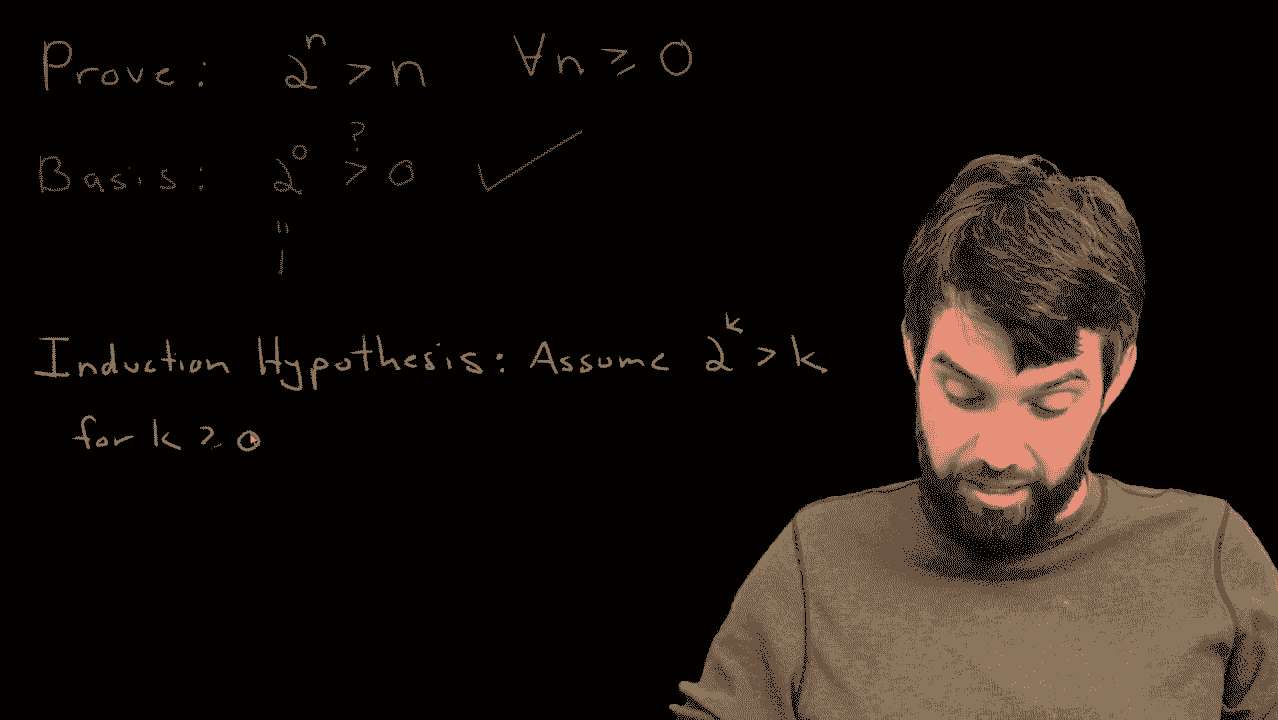 Prove: 2^n > n ∀n ≥ 0
Basis: 2^0 >^? 0 ✓
"
1
Induction Hypothesis: Assume 2^k > k
for k ≥ 0